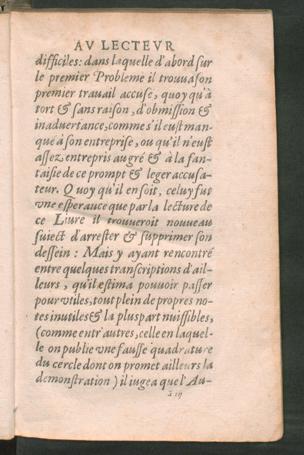 AV LECTEVR
difficiles: dans laquelle d'abord sur
le premier Probleme il trouua son
premier trauail accusé, quoy qu'à
tort & sans raison, d'obmission &
inaduertance, comme s'il eust man-
qué à son entreprise, ou qu'il n'eust
assez entrepris au gré & à la fan-
taisie de ce prompt & leger accusa-
teur. Quoy qu'il en soit, celuy fut
vne esperance que par la lecture de
ce Liure il trouueroit nouueau
suiect d'arrester & supprimer son
dessein : Mais y ayant rencontré
entre quelques transcriptions d'ail-
leurs, qu'il estima pouuoir passer
pour vtiles, tout plein de propres no-
tes inutiles & la pluspart nuisibles,
(comme entr'autres, celle en laquel-
le on publie vne fausse quadrature
du cercle dont on promet ailleurs la
demonstration) il iugea que l'Au-
ã iij